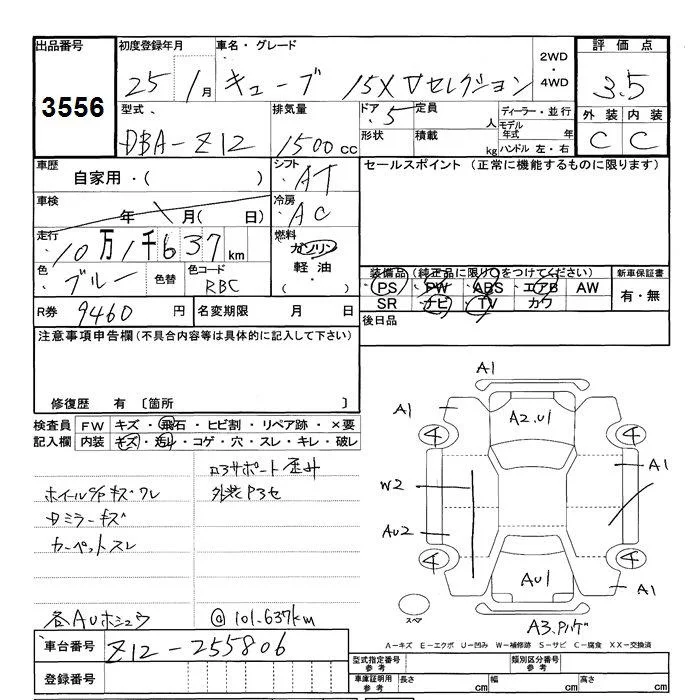 出品番号 初度登録年月 車名・グレード 2WD・4WD 評価点
3556 25 1月 キューブ 15X Vセレクション 3.5
型式 排気量 ドア 定員 ディーラー・並行 外装 内装
DBA-Z12 1500cc 5 人 モデル年式 年 C C
形状 積載 kg ハンドル 左・右
車歴 シフト セールスポイント (正常に機能するものに限ります)
自家用・( ) AT
車検 冷房
年 月( 日) AC
走行 燃料
10万1千637km ガソリン
色 色替 色コード 軽油・
ブルー RBC ( )
装備品 (純正品に限り○をつけてください) 新車保証書
PS PW ABS エアB AW 有・無
SR ナビ TV カワ
R券 9460円 名変期限 月 日 後日品
注意事項申告欄 (不具合内容等は具体的に記入して下さい)
修復歴 有 〔箇所 〕
検査員 FW キズ・飛石・ヒビ割・リペア跡・×要
記入欄 内装 キズ・汚れ・コゲ・穴・スレ・キレ・破レ
外装P3セ
ホイールC/Pキズ・ワレ
Dミラーキズ
カーペットスレ
各AUホシュウ @101.637km
A1
A1 A2.U1
4 4
W2 A1
AU2
4 4
AU1 A1
スペア
A3.
A-キズ E-エクボ U-凹み W-補修跡 S-サビ C-腐食 XX-交換済
車台番号 Z12-255806
登録番号
型式指定番号 参考 類別区分番号 参考
車庫証明用 参考 長さ cm 幅 cm 高さ cm